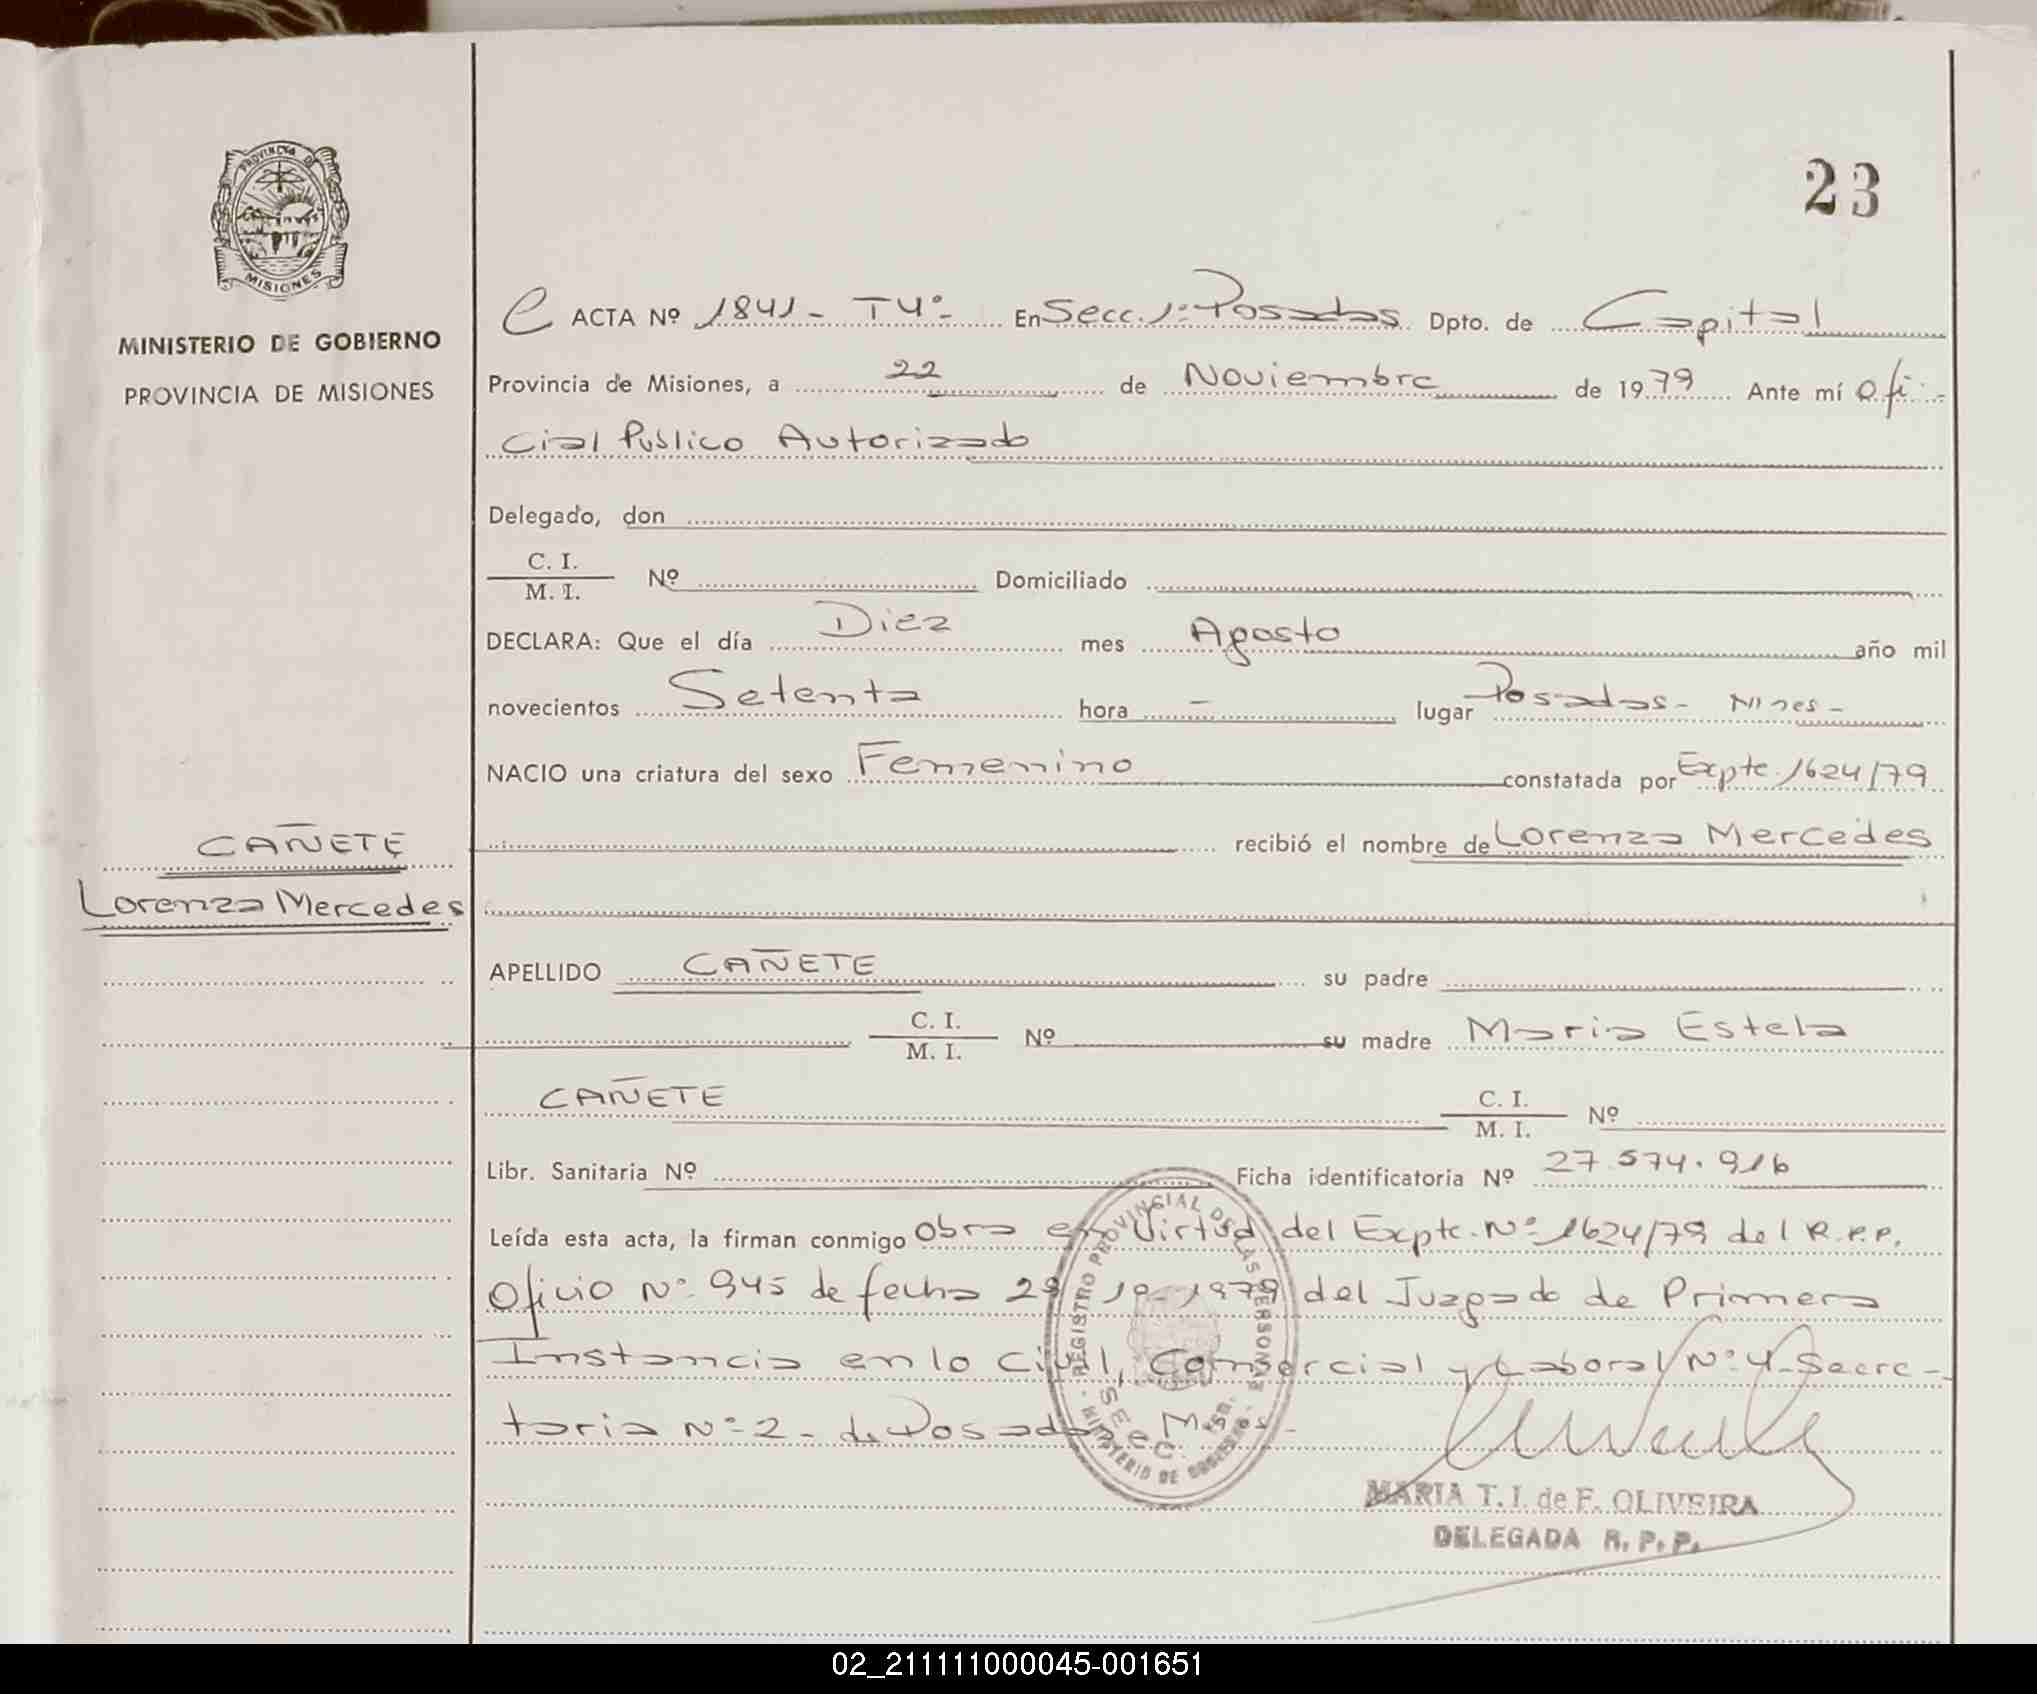 23
PROVINCIA DE
MISIONES
MINISTERIO DE GOBIERNO
PROVINCIA DE MISIONES
ACTA Nº 1841 - T4º - En Secc. 1º Posadas Dpto. de Capital
Provincia de Misiones, a 22 de Noviembre de 1979 Ante mí ofi-
cial Publico Autorizado
Delegado, don
C. I.
M. I. Nº Domiciliado
DECLARA: Que el día Diez mes Agosto año mil
novecientos Setenta hora - lugar Posadas -
NACIO una criatura del sexo Femenino constatada por Expte. 1624/79
recibió el nombre de Lorenza Mercedes
CAÑETE
Lorenza Mercedes
APELLIDO CAÑETE su padre
C. I.
M. I. Nº su madre Maria Estela
CAÑETE C. I.
M. I. Nº
Libr. Sanitaria Nº Ficha identificatoria Nº 27.574.916
Leída esta acta, la firman conmigo Obra en Virtud del Expte. Nº 1624/79 del R.P.P.
Oficio Nº 945 de fecha 29 10-1979 del Juzgado de Primera
Instancia en lo Civil, Comercial y Laboral Nº 4 - Secre-
taria Nº 2 - de Posadas
REGISTRO PROVINCIAL DE LAS PERSONAS
MINISTERIO DE GOBIERNO
SECC.
MARIA T. I. de F. OLIVEIRA
DELEGADA R. P. P.
02_211111000045-001651